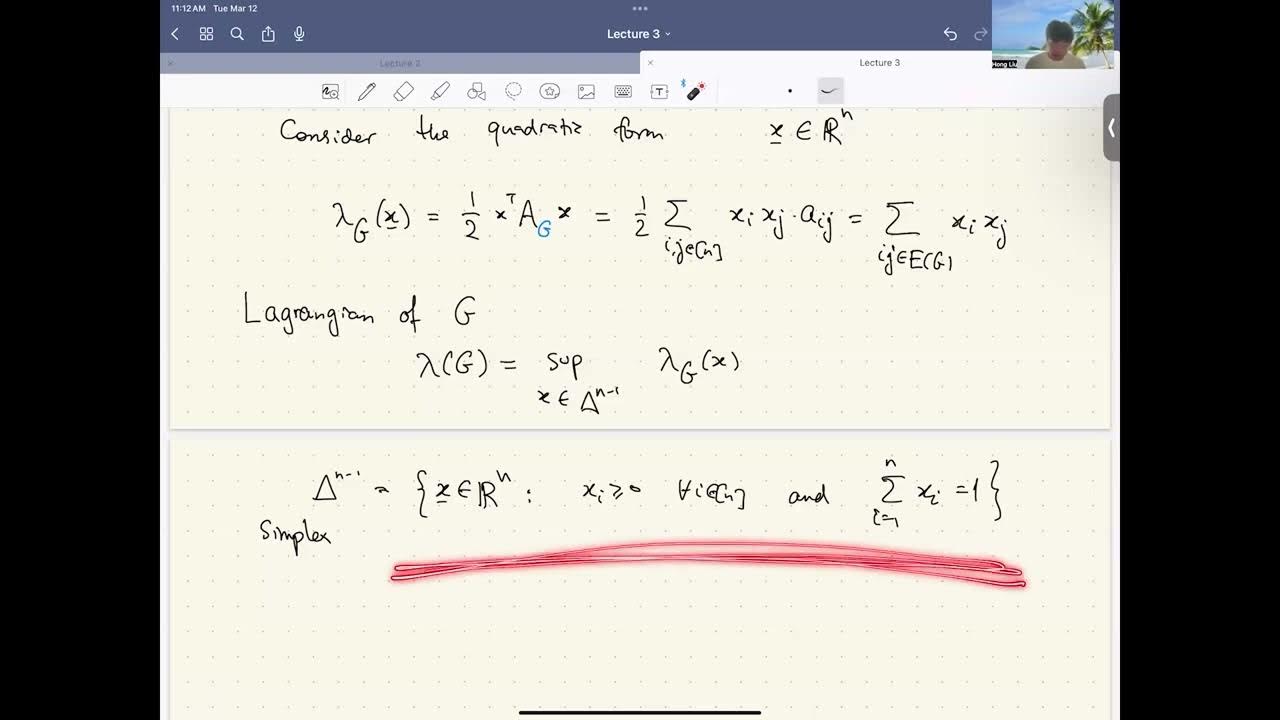 11:12 AM Tue Mar 12
Lecture 3
Lecture 2
Lecture 3
Hong Liu
Consider the quadratic form x ∈ ℝⁿ
λ_G(x) = 1/2 xᵀ A_G x = 1/2 ∑_{i,j∈[n]} x_i x_j · a_{ij} = ∑_{ij∈E(G)} x_i x_j
Lagrangian of G
λ(G) = sup_{x ∈ Δ^{n-1}} λ_G(x)
Δ^{n-1} = {x ∈ ℝⁿ : x_i ≥ 0 ∀i∈[n] and ∑_{i=1}^{n} x_i = 1}
Simplex